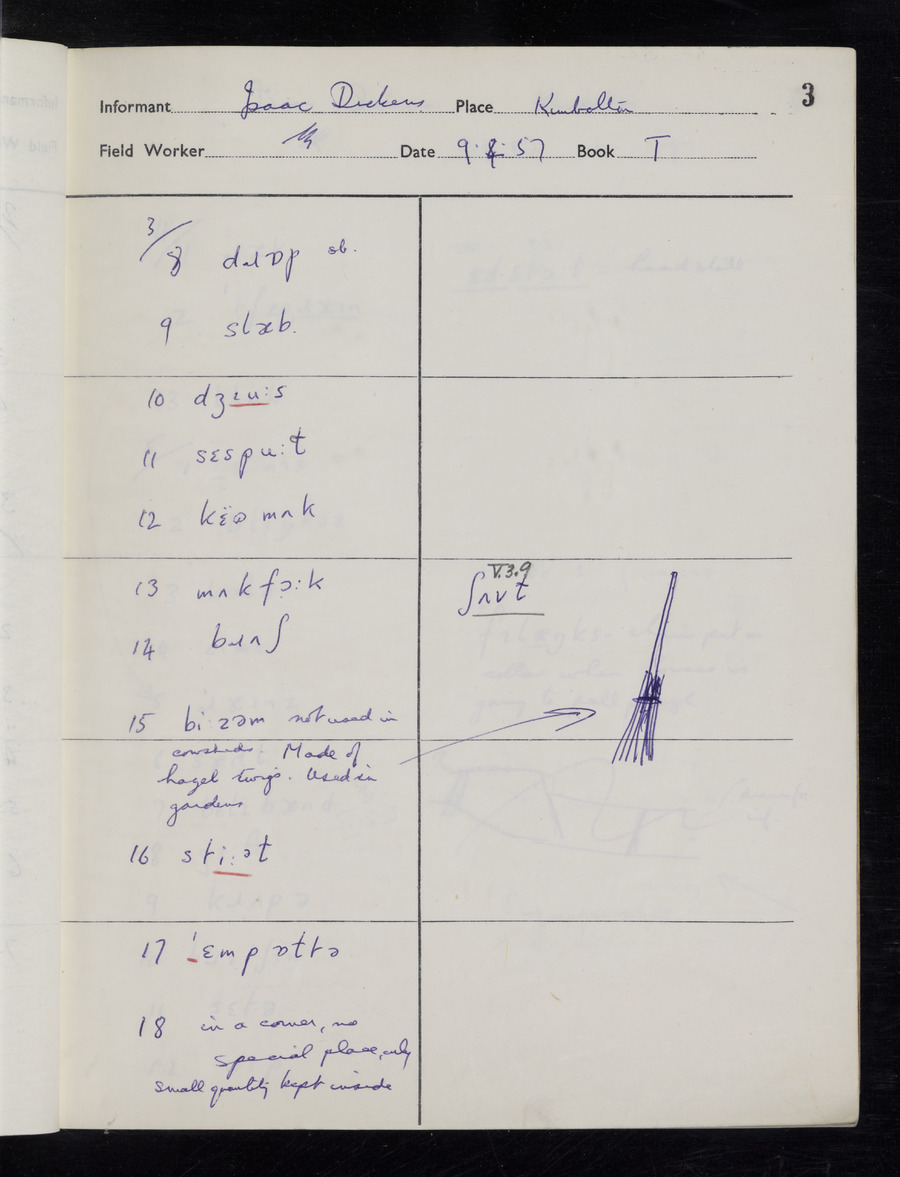 3
Informant Isaac Dickens Place Kimbolton
Field Worker Date 9. 57 Book T
3/8 dɹɒp sb.
9 slæb.
10 dʒɹuːs
11 sɛspuːt
12 kɛ̈ə mʌk
13 mʌk fɔːk
V.3.9
ʃʌvt
14 bɹʌʃ
15 biːzəm not used in
cowsheds. Made of
hazel twigs. Used in
gardens
16 stɹiːət
17 ˈɛmp
18 in a corner, no
special place, only
small quantity kept inside